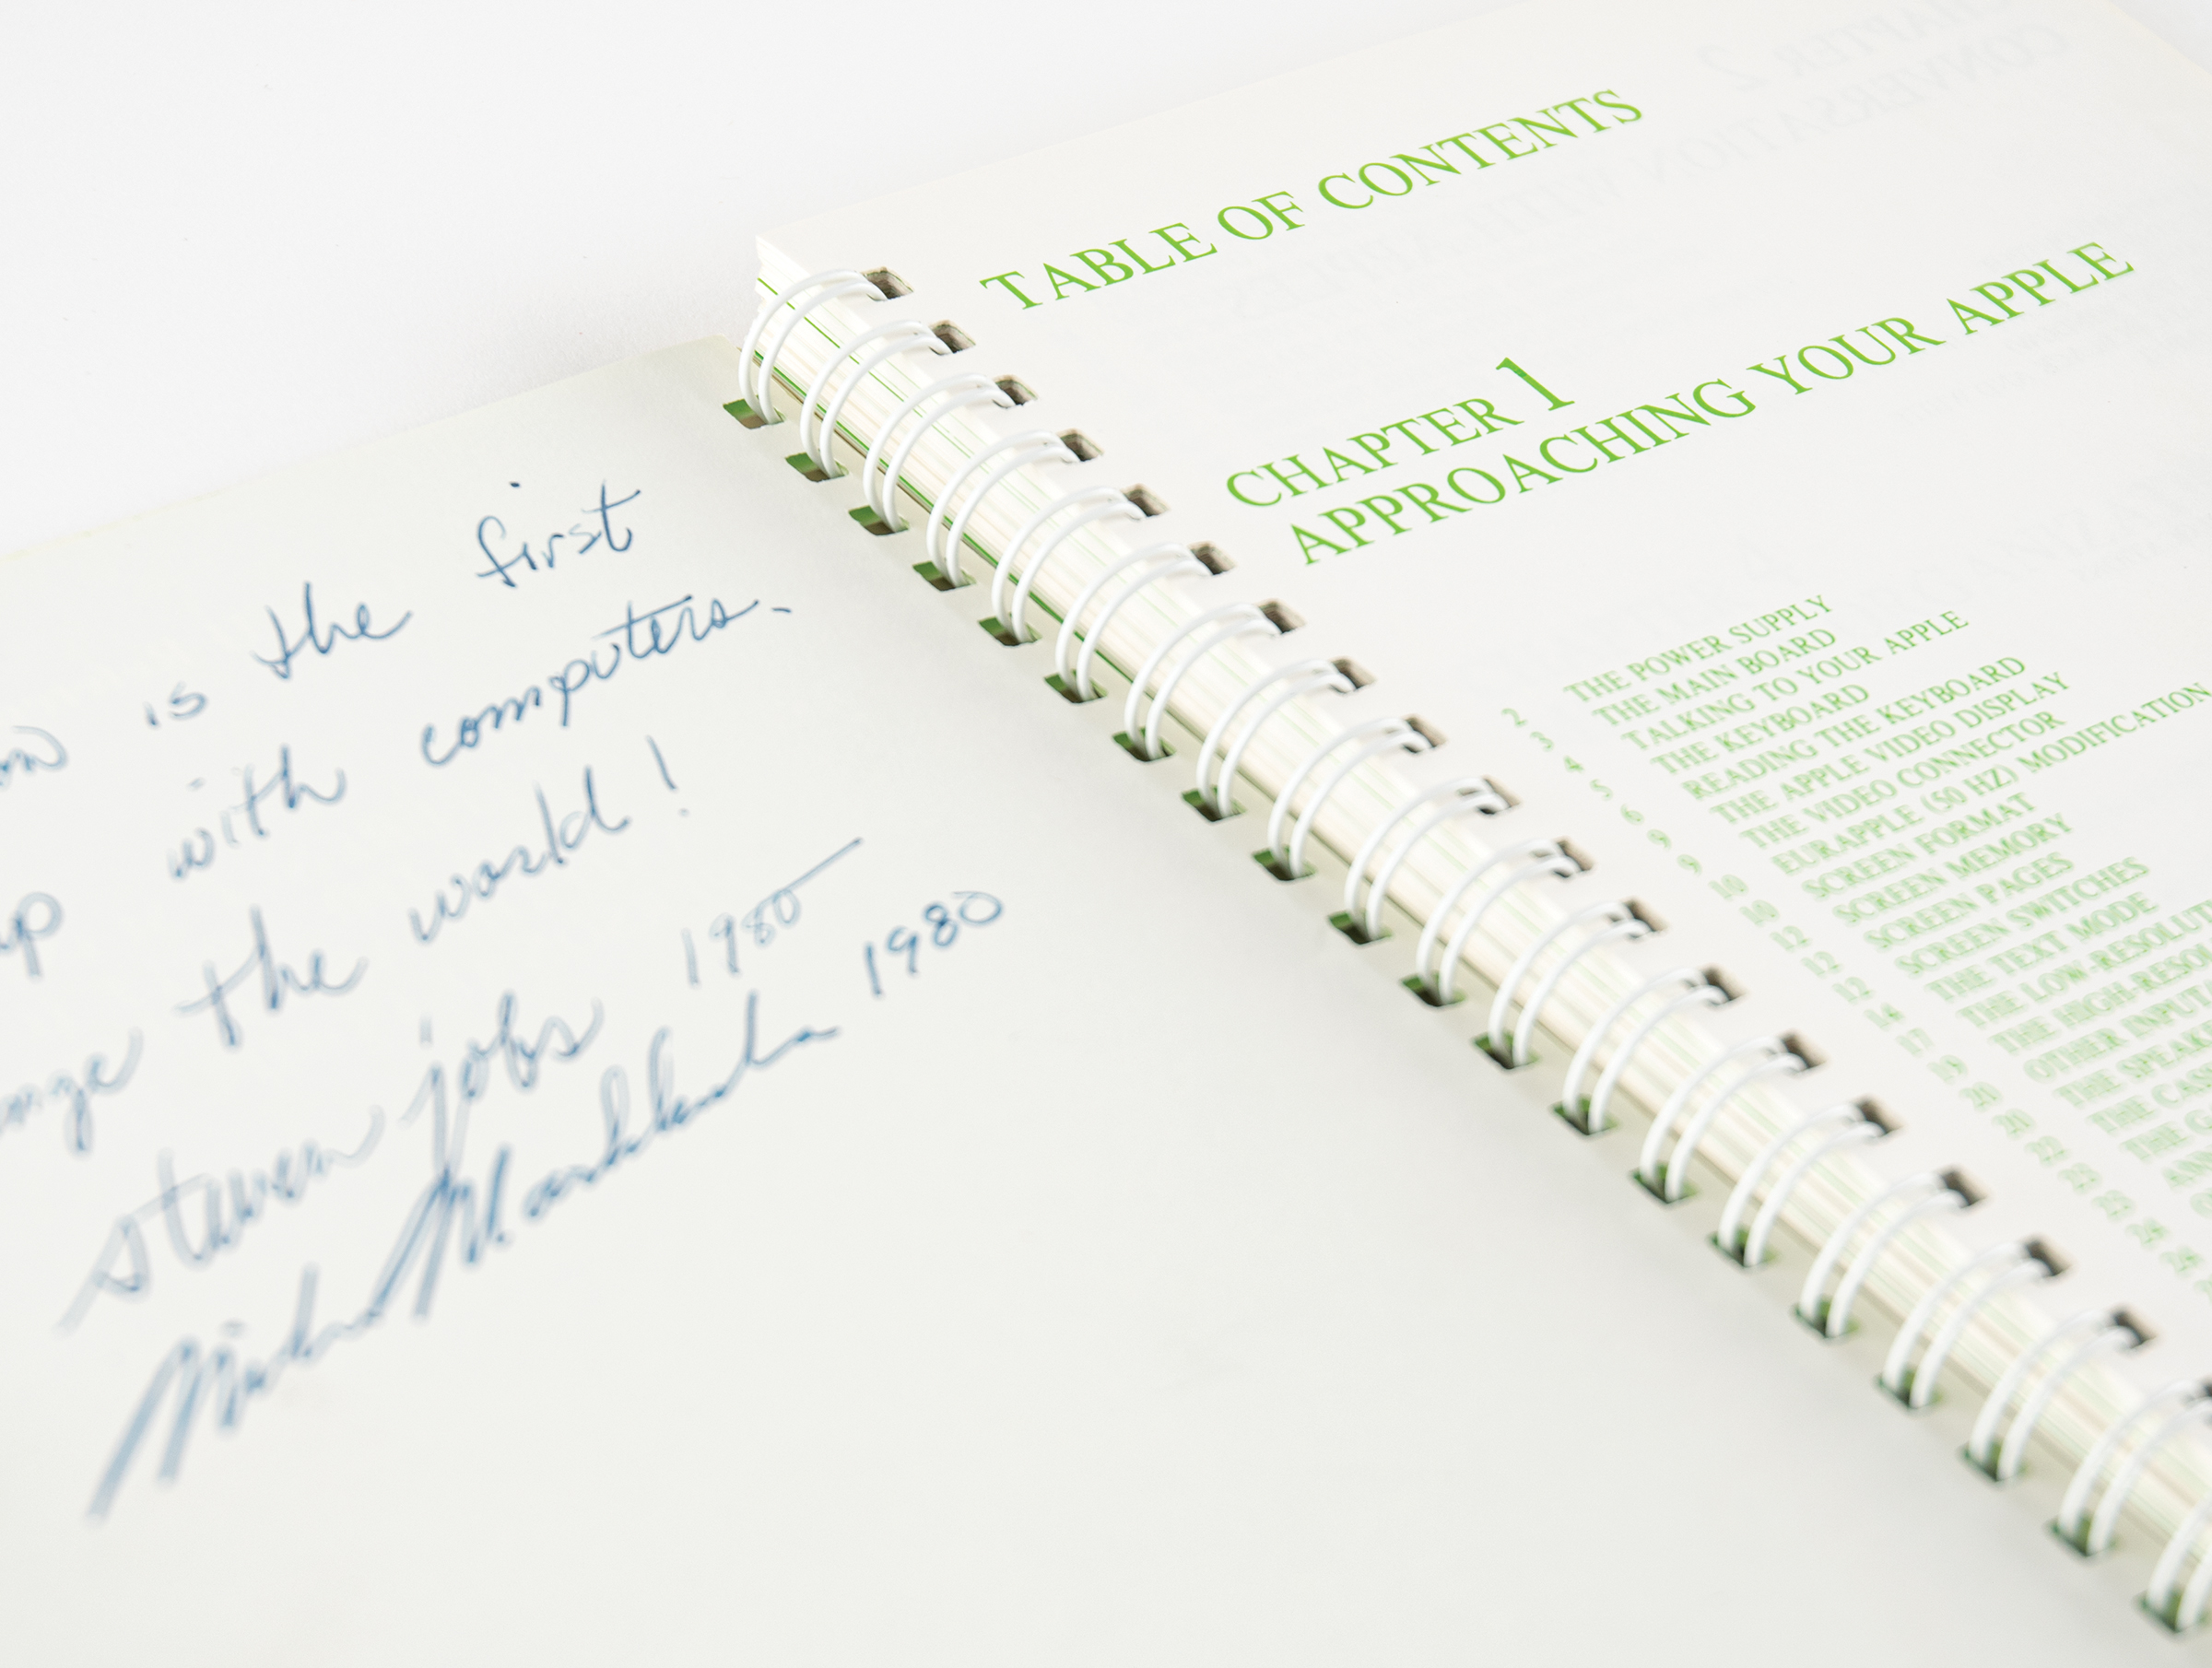 is the first
with computers.
the world!
steven jobs 1980
Markkula 1980
TABLE OF CONTENTS
CHAPTER 1
APPROACHING YOUR APPLE
2 THE POWER SUPPLY
3 THE MAIN BOARD
4 TALKING TO YOUR APPLE
5 THE KEYBOARD
6 READING THE KEYBOARD
9 THE APPLE VIDEO DISPLAY
9 THE VIDEO CONNECTOR
10 EURAPPLE (50 HZ) MODIFICATION
10 SCREEN FORMAT
12 SCREEN MEMORY
12 SCREEN PAGES
12 SCREEN SWITCHES
14 THE TEXT MODE
17 THE LOW-RESOLUT
19 THE HIGH-RESOL
20 OTHER INPUT
20 THE SPEAK
22 THE CAS
23 THE G
23 AN